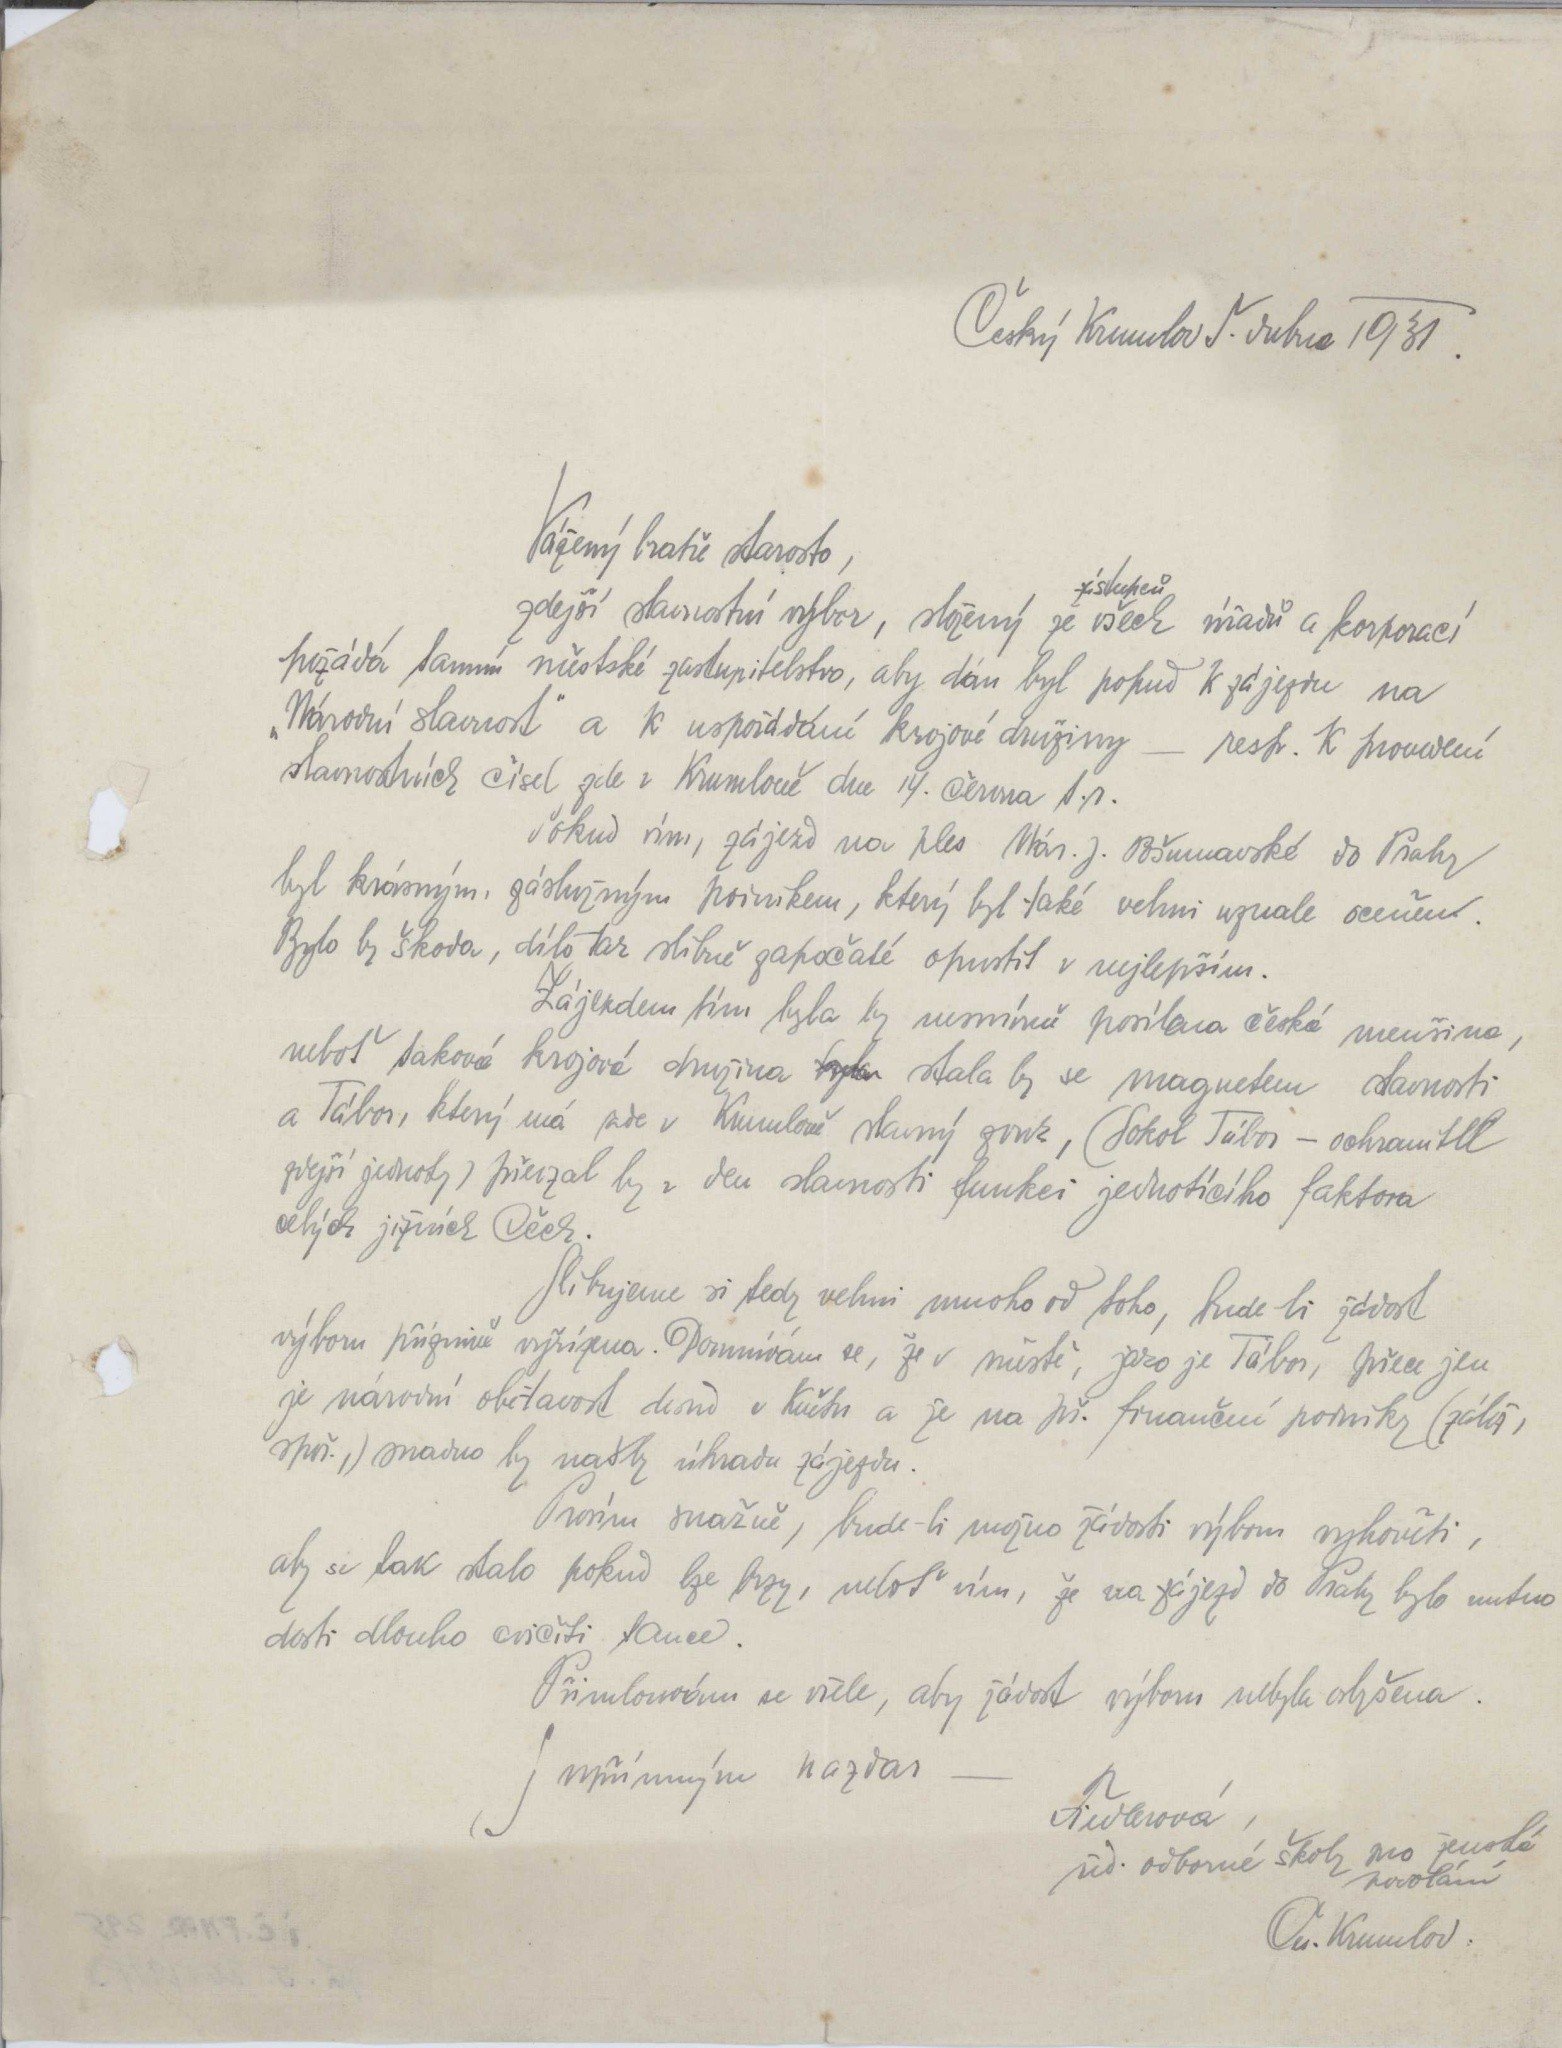 Český Krumlov 5. dubna 1931.
Vážený bratře starosto,
zdejší slavnostní výbor, složený ze zástupců všech úřadů a korporací
požádá tamní městské zastupitelstvo, aby dán byl popud k zájezdu na
„Národní slavnost" a k uspořádání krojové družiny — resp. k provedení
slavnostních čísel zde v Krumlově dne 14. června t.r.
Pokud vím, zájezd na ples Nár. j. Pošumavské do Prahy
byl krásným, záslužným podnikem, který byl také velmi uznale oceněn.
Bylo by škoda, dílo tak slibně započaté opustit v nejlepším.
Zájezdem tím byla by nesmírně posílena česká menšina,
neboť taková krojová družina byla stala by se magnetem slavnosti
a Tábor, který má zde v Krumlově slavný zvuk, (Sokol Tábor – ochranitel
zdejší jednoty) převzal by v den slavnosti funkci jednotícího faktora
celých jižních Čech.
Slibujeme si tedy velmi mnoho od toho, bude-li žádost
výboru příznivě vyřízena. Domnívám se, že v městě, jako je Tábor, přece jen
je národní obětavost dosud v květu a že na př. finanční podniky (zálož,
spoř.,) snadno by našly úhradu zájezdu.
Prosím snažně, bude-li možno žádosti výboru vyhověti,
aby se tak stalo pokud lze brzy, neboť vím, že na zájezd do Prahy bylo nutno
dosti dlouho cvičiti tance.
Přimlouvám se vřele, aby žádost výboru nebyla oslyšena.
S upřímným nazdar —
Fiedlerová,
řed. odborné školy pro ženská
povolání
Čes. Krumlov.